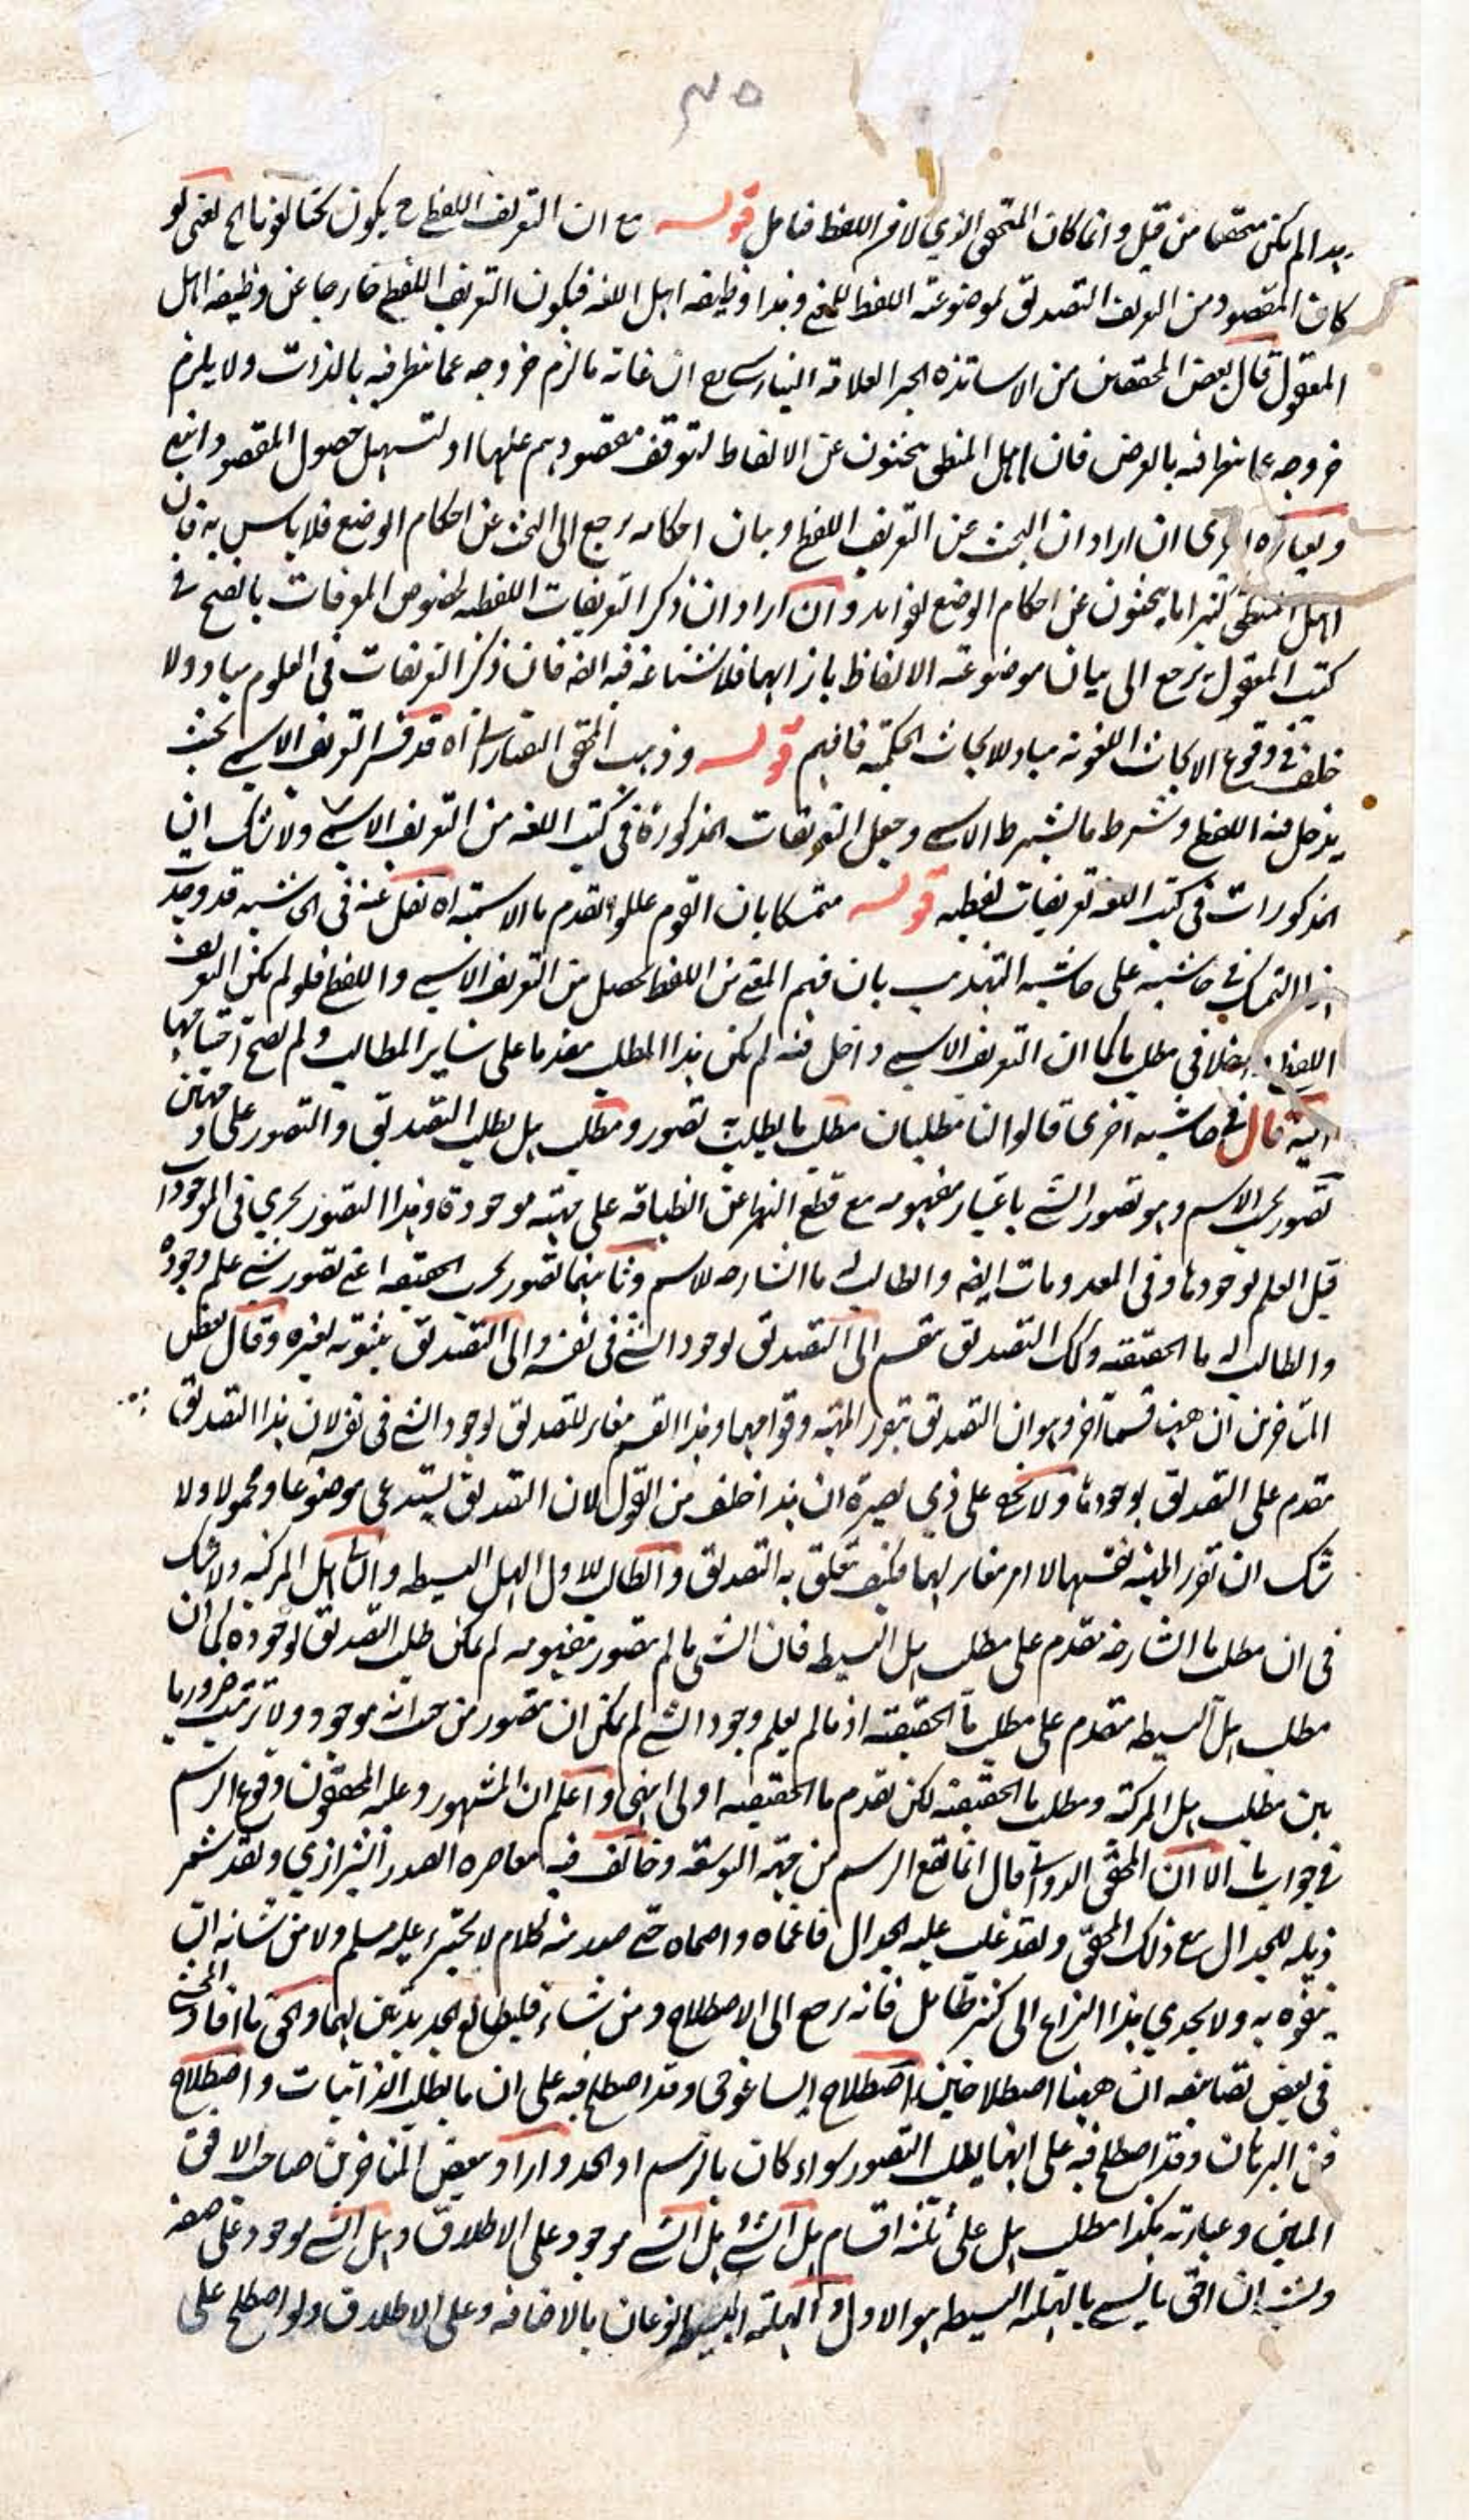 ٣٥
بهذا لم يكن متحققا من قبل وانما كان المتحقق الذي لافر اللفظ فتامل قوله مع ان التعريف اللفظي ح يكون بحثا لغويا الخ يعني لو
كان المقصود من التعريف التصديق لموضوعية اللفظ للمعنى وهذا وظيفة اهل اللغة فيكون التعريف اللفظي خارجا عن وظيفة اهل
المعقول قال بعض المحققين من الاساتذة الحبر العلامة البنارسي مع ان غاية ما لزم خروجه عما نظر فيه بالذات ولا يلزم
خروجه عما نظر فيه بالعرض فان اهل المنطق يبحثون عن الالفاظ لتوقف مقصودهم عليها او لتسهيل حصول المقصود انتهى
وبعبارة اخرى ان اراد ان البحث عن التعريف اللفظي وبيان احكامه يرجع الى البحث عن احكام الوضع فلا باس به فان
اهل المنطق كثيرا ما يبحثون عن احكام الوضع لفوائد وان اراد ان ذكر التعريفات اللفظية لخصوص المعرفات بالفتح في
كتب المعقول يرجع الى بيان موضوعية الالفاظ بازائها فلا شناعة فيه ايضا فان ذكر التعريفات في العلوم مباد ولا
خلف في وقوع الابحاث اللغوية مباد للابحاث الحكمية فافهم قوله وذهب المحقق التفتازاني اه قد فسر التعريف الاسمي بحيث
يدخل فيه اللفظي وشرط ما يشترط الاسمي وجعل التعريفات المذكورة في كتب اللغة من التعريف الاسمي ولا شك ان
المذكورات في كتب اللغة تعريفات لفظية قوله متمسكا بان القوم عللوا تقدم ما الاسمية اه نقل عنه في الحاشية قد وجدت
هذا التمسك في حاشيته على حاشية التهذيب بان فهم المعنى من اللفظ يحصل من التعريف الاسمي واللفظي فلو لم يكن التعريف
اللفظي داخلا في مطلب ما كما ان التعريف الاسمي داخل فيه لم يكن هذا المطلب مقدما على سائر المطالب ولم يصح احتياجها
اليه قال في حاشية اخرى قالوا لنا مطلبان مطلب ما يطلب به تصور ومطلب هل يطلب التصديق والتصور على وجهين
تصور بحسب الاسم وهو تصور الشئ باعتبار مفهومه مع قطع النظر عن انطباقه على مهية موجودة وهذا التصور يجري في الموجودات
قبل العلم بوجودها وفي المعدومات ايضا والطالب له ما الشارحة للاسم وثانيهما تصور بحسب الحقيقة اعني تصور شئ علم وجوده
والطالب له ما الحقيقية وكذلك التصديق ينقسم الى التصديق بوجود الشئ في نفسه والى التصديق بثبوته لغيره وقال بعض
المتاخرين ان ههنا قسما آخر وهو ان التصديق بتقرر المهية وقوامها وهذا القسم مغاير للتصديق بوجود الشئ في نفسه لان هذا التصديق
مقدم على التصديق بوجودها ولا يخفى على ذي بصيرة ان هذا خلف من القول لان التصديق يستدعي موضوعا ومحمولا ولا
شك ان تقرر المهية نفسها لا امر مغاير لها فكيف يتعلق به التصديق والطالب للاول الهل البسيطة والثاني الهل المركبة ولا شك
في ان مطلب ما الشارحة مقدم على مطلب هل البسيطة فان الشئ ما لم يتصور مفهومه لم يمكن طلب التصديق بوجوده كما ان
مطلب هل البسيطة مقدم على مطلب ما الحقيقية اذ ما لم يعلم وجود الشئ لم يمكن ان يتصور من حيث انه موجود ولا ترتيب ضروريا
بين مطلب هل المركبة ومطلب ما الحقيقية لكن تقدم ما الحقيقية اولى انتهى واعلم ان المشهور وعليه المحققون وقوع الرسم
في جواب ما الا ان المحقق الدواني قال انما يقع الرسم من جهة التوسعة وخالف فيه معاصره الصدر الشيرازي ولقد شمر
ذيله للجدال مع ذلك المحقق ولقد غلب عليه الجدال فاعماه واصماه حتى صدر منه كلام لا يجترء عليه مسلم ولا من شانه ان
يتفوه به ولا يجدي هذا النزاع الى كثير طائل فانه يرجع الى الاصطلاح ومن شاء فليطالع الجديدتين لهما والحق ما افاد المحشي
في بعض تصانيفه ان ههنا اصطلاحين اصطلاح ايساغوجي وقد اصطلح فيه على ان ما يطلب الذاتيات واصطلاح
فن البرهان وقد اصطلح فيه على انها يطلب التصور سواء كان بالرسم او الحد واراد بعض المتاخرين صاحب الافق
المبين وعبارته هكذا مطلب هل على ثلثة اقسام هل الشئ هل الشئ موجود على الاطلاق وهل الشئ موجود على صفة
ويشبه ان احق ما يسمى بالهلية البسيطة هو الاول والهلية البسيطة نوعان بالاضافة وعلى الاطلاق ولو اصطلح على